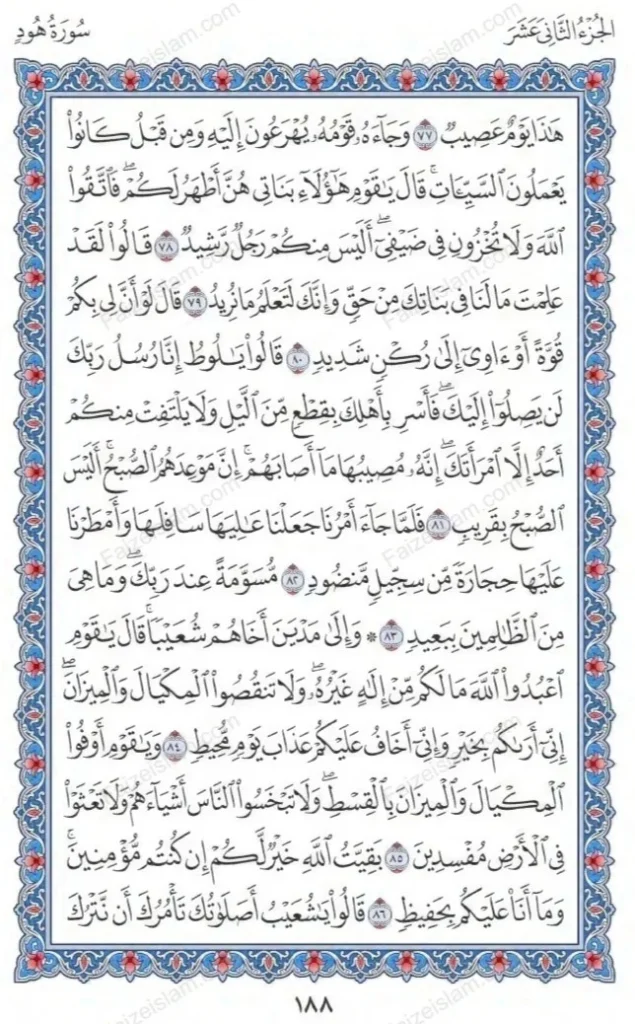 الجُزْءُ الثَّانِى عَشَرَ
سُورَةُ هُودٍ
هَٰذَا يَوْمٌ عَصِيبٌ ٧٧ وَجَآءَهُۥ قَوْمُهُۥ يُهْرَعُونَ إِلَيْهِ وَمِن قَبْلُ كَانُوا۟
يَعْمَلُونَ ٱلسَّيِّـَٔاتِۚ قَالَ يَٰقَوْمِ هَٰٓؤُلَآءِ بَنَاتِى هُنَّ أَطْهَرُ لَكُمْۖ فَٱتَّقُوا۟
ٱللَّهَ وَلَا تُخْزُونِ فِى ضَيْفِىٓۖ أَلَيْسَ مِنكُمْ رَجُلٌ رَّشِيدٌ ٧٨ قَالُوا۟ لَقَدْ
عَلِمْتَ مَا لَنَا فِى بَنَاتِكَ مِنْ حَقٍّ وَإِنَّكَ لَتَعْلَمُ مَا نُرِيدُ ٧٩ قَالَ لَوْ أَنَّ لِى بِكُمْ
قُوَّةً أَوْ ءَاوِىٓ إِلَىٰ رُكْنٍ شَدِيدٍ ٨٠ قَالُوا۟ يَٰلُوطُ إِنَّا رُسُلُ رَبِّكَ
لَن يَصِلُوٓا۟ إِلَيْكَۖ فَأَسْرِ بِأَهْلِكَ بِقِطْعٍ مِّنَ ٱلَّيْلِ وَلَا يَلْتَفِتْ مِنكُمْ
أَحَدٌ إِلَّا ٱمْرَأَتَكَۖ إِنَّهُۥ مُصِيبُهَا مَآ أَصَابَهُمْۚ إِنَّ مَوْعِدَهُمُ ٱلصُّبْحُۚ أَلَيْسَ
ٱلصُّبْحُ بِقَرِيبٍ ٨١ فَلَمَّا جَآءَ أَمْرُنَا جَعَلْنَا عَٰلِيَهَا سَافِلَهَا وَأَمْطَرْنَا
عَلَيْهَا حِجَارَةً مِّن سِجِّيلٍ مَّنضُودٍ ٨٢ مُّسَوَّمَةً عِندَ رَبِّكَۖ وَمَا هِىَ
مِنَ ٱلظَّٰلِمِينَ بِبَعِيدٍ ٨٣ ۞ وَإِلَىٰ مَدْيَنَ أَخَاهُمْ شُعَيْبًاۚ قَالَ يَٰقَوْمِ
ٱعْبُدُوا۟ ٱللَّهَ مَا لَكُم مِّنْ إِلَٰهٍ غَيْرُهُۥۖ وَلَا تَنقُصُوا۟ ٱلْمِكْيَالَ وَٱلْمِيزَانَۖ
إِنِّىٓ أَرَىٰكُم بِخَيْرٍ وَإِنِّىٓ أَخَافُ عَلَيْكُمْ عَذَابَ يَوْمٍ مُّحِيطٍ ٨٤ وَيَٰقَوْمِ أَوْفُوا۟
ٱلْمِكْيَالَ وَٱلْمِيزَانَ بِٱلْقِسْطِۖ وَلَا تَبْخَسُوا۟ ٱلنَّاسَ أَشْيَآءَهُمْ وَلَا تَعْثَوْا۟
فِى ٱلْأَرْضِ مُفْسِدِينَ ٨٥ بَقِيَّتُ ٱللَّهِ خَيْرٌ لَّكُمْ إِن كُنتُم مُّؤْمِنِينَۚ
وَمَآ أَنَا۠ عَلَيْكُم بِحَفِيظٍ ٨٦ قَالُوا۟ يَٰشُعَيْبُ أَصَلَوٰتُكَ تَأْمُرُكَ أَن نَّتْرُكَ
١٨٨
Faizeislam.com